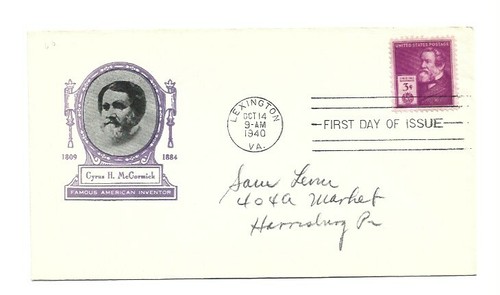 UNITED STATES POSTAGE
3¢
LEXINGTON
OCT 14
9-AM
1940
VA.
FIRST DAY OF ISSUE
1809 1884
Cyrus H. McCormick
FAMOUS AMERICAN INVENTOR
Sam
404A Market
Harrisburg Pa